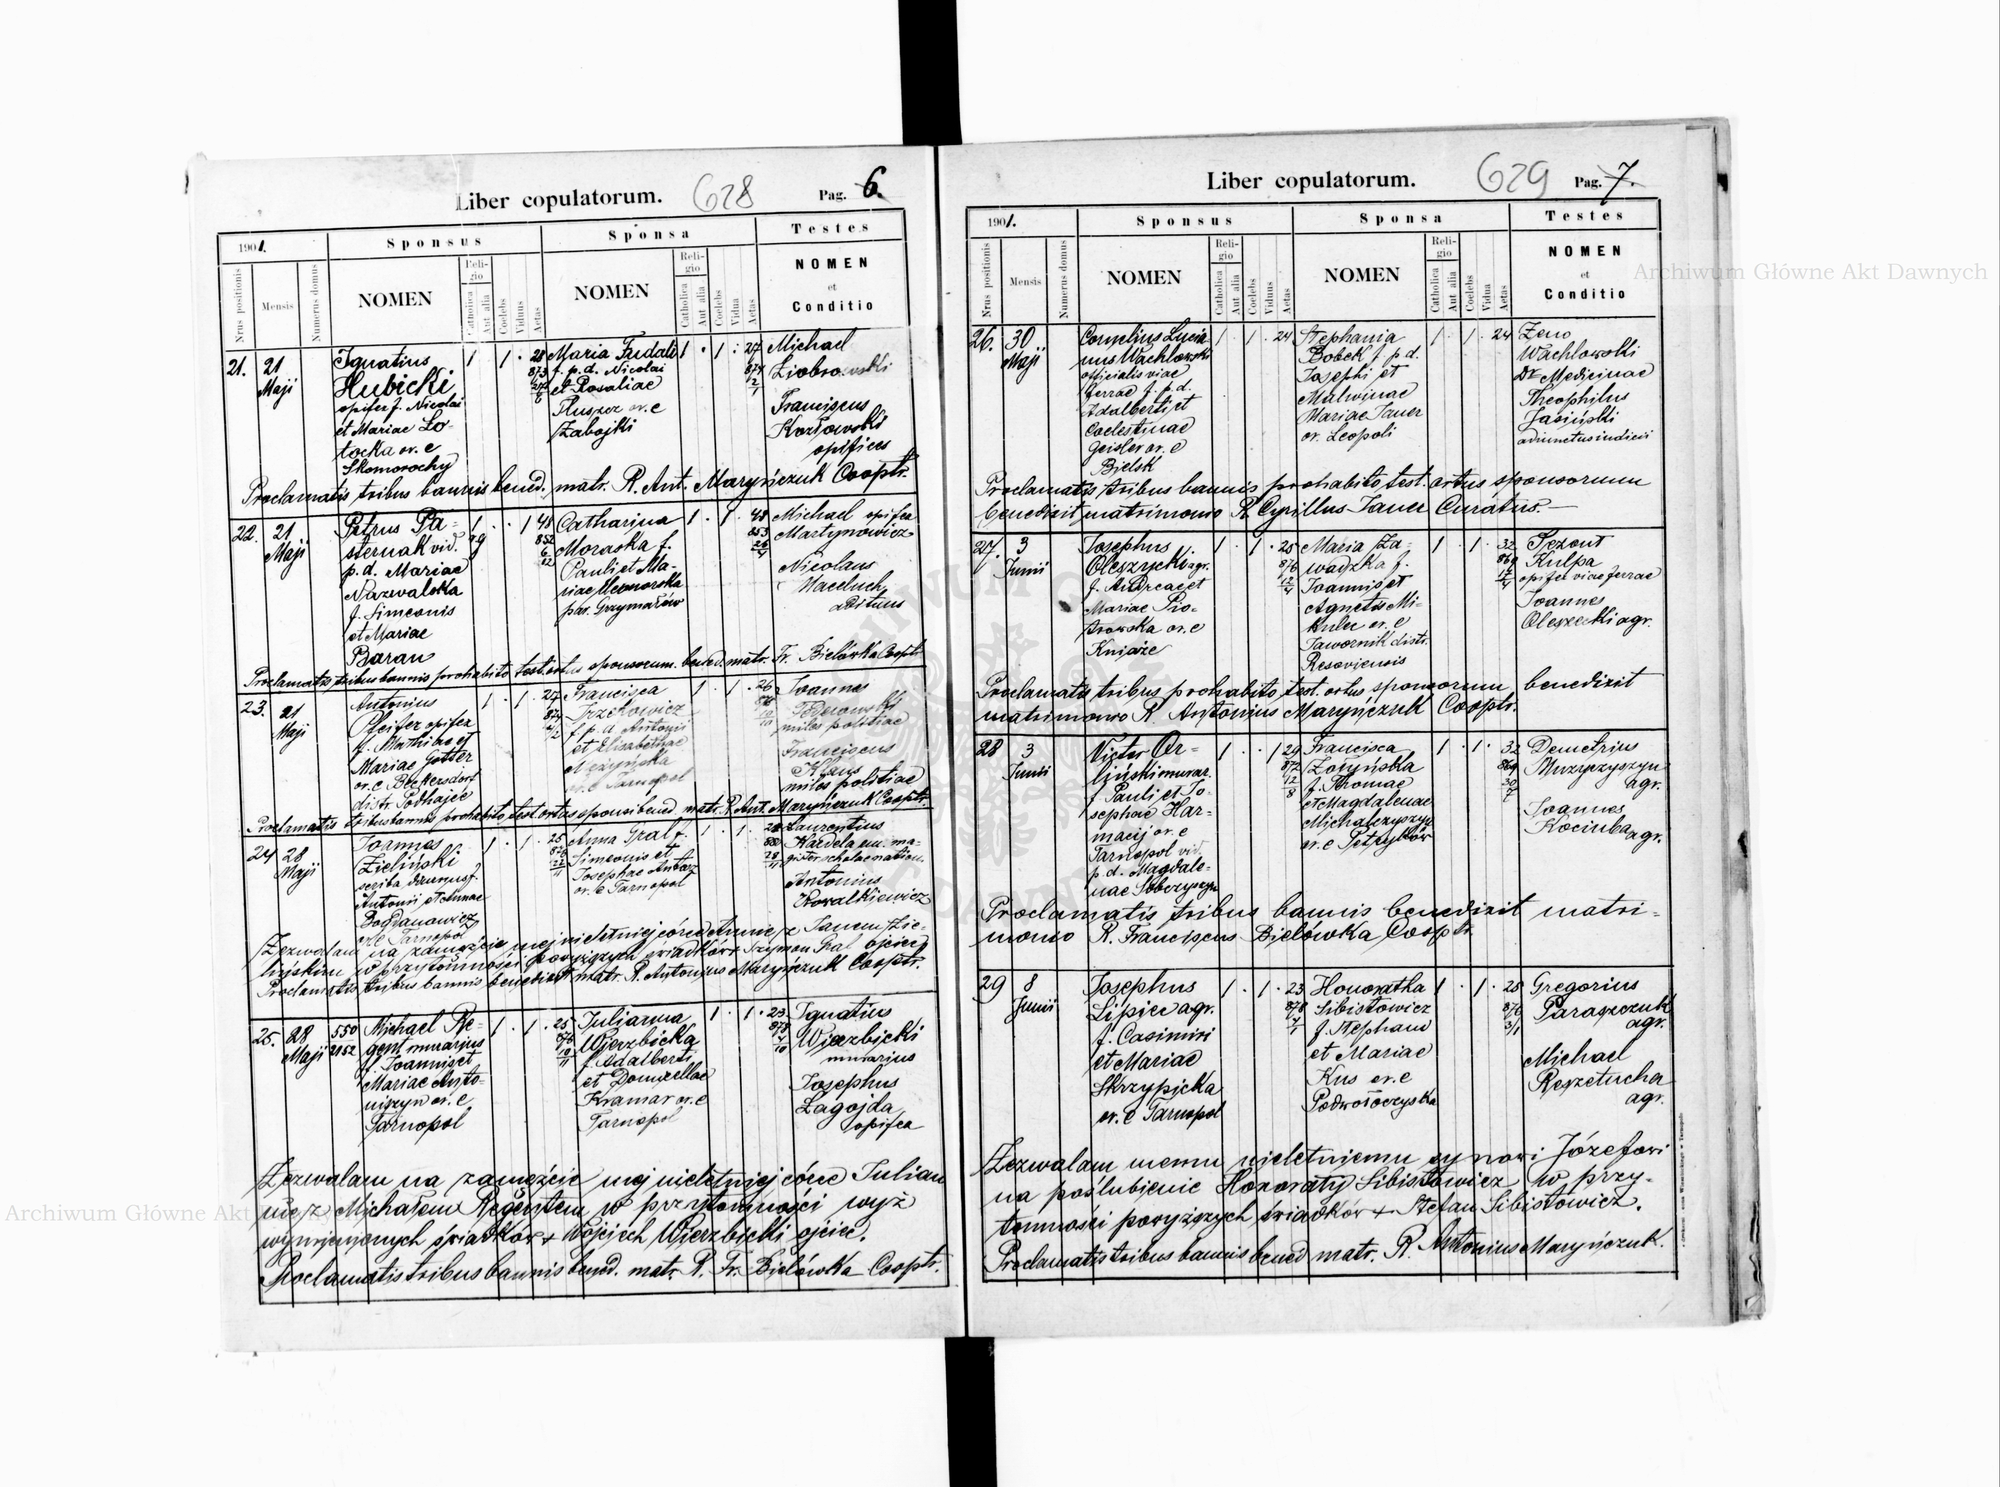 Liber copulatorum. 628 Pag. 6.
1901.
Sponsus
Sponsa
Testes
Nrus positionis
Mensis
Numerus domus
NOMEN
Religio
Catholica
Aut alia
Coelebs
Viduus
Aetas
NOMEN
Religio
Catholica
Aut alia
Coelebs
Vidua
Aetas
NOMEN
et
Conditio
21. 21 Maji
Ignatius
Hubicki
opifex f. Nicolai
et Mariae Lo-
tocka or. e
Skomorochy
1 1 28
873
Maria Fudali
f. p. d. Nicolai
et Rosaliae
Pluszcz or. e
Zabojki
1 1 27
874
Michael
Ziobrowski
Franciscus
Kozłowski
opifices
Proclamatis tribus bannis bened. matr. R. Ant. Maryńczuk Cooptr.
22. 21 Maji
Petrus Pa-
sternak vid.
p. d. Mariae
Nazwalska
f. Simeonis
et Mariae
Baran
1 1 48
852
6
12
Catharina
Moraska f.
Pauli et Ma-
riae
par. Grzymałów
1 1 48
853
Michael opifex
Martynowicz
Nicolaus
Waceluch
Proclamatis tribus bannis prohabito test. ortus sponsorum. bened. matr. Fr. Bielówka Cooptr.
23. 21 Maji
Antonius
Pfeifer opifex
f. Mathiae et
Mariae Gotter
or. e Beckersdorf
distr. Podhajce
1 1 27
874
Francisca
f. p. d. Antonii
et Elisabethae
or. e Tarnopol
1 1 26
Joannes
miles politiae
Franciscus
Klaus
miles politiae
Proclamatis tribus bannis prohabito test. ortus sponsi bened. matr. R. Ant. Maryńczuk Cooptr.
24 28 Maji
Joannes
Zieliński
scriba diurnus f.
Antonii et Annae
Bogdanowicz
or. e Tarnopol
1 1 25
Anna Gral f.
Simeonis et
Josephae
or. e Tarnopol
1 1
Laurentius
Kardela em. ma-
gister scholae
Antonius
Kowalkiewicz
Zezwalam na zamęście mej nieletniej córce Annie z Janem Zie-
lińskim w przytomności powyższych świadków + Szymon Gral ojciec
Proclamatis tribus bannis benedixit matr. R. Antonius Maryńczuk Cooptr.
25. 28 Maji
550
2152
Michael Re-
gent murarius
f. Joannis et
Mariae Anto-
niszyn or. e
Tarnopol
1 1 25
Julianna
Wierzbicka
f. Adalberti
et Domicellae
Kramar or. e
Tarnopol
1 1 23
878
Ignatius
Wierzbicki
murarius
Josephus
Zagojda
opifex
Zezwalam na zamęście mej nieletniej córce Julian
nie z Michałem Regentem w przytomności wyż
wymienionych świadków + Wojciech Wierzbicki ojciec.
Proclamatis tribus bannis bened. matr. R. Fr. Bielówka Cooptr.
Liber copulatorum. 629 Pag. 7.
1901.
Sponsus
Sponsa
Testes
Nrus positionis
Mensis
Numerus domus
NOMEN
Religio
Catholica
Aut alia
Coelebs
Viduus
Aetas
NOMEN
Religio
Catholica
Aut alia
Coelebs
Vidua
Aetas
NOMEN
et
Conditio
26. 30 Maji
Cornelius Lucia
nus Wachlowski
officialis viae
ferrae f. p. d.
Adalberti et
Coelestinae
Geisler or. e
Bielsk
1 1 24
Stephania
Bobek f. p. d.
Josephi et
Malwinae
Mariae Janer
or. Leopoli
1 1 24
Zeno
Wachlowski
Dr Medicinae
Theophilus
Jasiński
adiunctus iudicii
Proclamatis tribus bannis prohabito test. ortus sponsorum
benedixit matrimonio R. Cyrillus Janer Curatus.—
27. 3 Junii
Josephus
Oleszycki agr.
f. Andreae et
Mariae Pio-
trowska or. e
Kniaże
1 1 25
876
12
4
Maria Za-
wadzka f.
Joannis et
Agnetis Mi-
kulec or. e
Jawornik distr.
Resoviensis
1 1 32
869
Kulpa
opifex viae ferrae
Joannes
agr.
Proclamatis tribus prohabito test. ortus sponsorum benedixit
matrimonio R. Antonius Maryńczuk Cooptr.
28 3 Junii
Victor Or-
liński murar.
f. Pauli et Jo-
sephae Har-
macij or. e
Tarnopol vid.
p. d. Magdale-
nae Sobczyszyn
1 1 29
872
12
8
Francisca
Zołyńska
f. Thomae
et Magdalenae
Michalczyszyn
or. e Petryków
1 1 32
869
30
7
Demetrius
Muzyczyszyn
agr.
Joannes
Kociuba agr.
Proclamatis tribus bannis benedixit matri-
monio R. Franciscus Bielówka Cooptr.
29 8 Junii
Josephus
Lipiec agr.
f. Casimiri
et Mariae
Skrzypicka
or. e Tarnopol
1 1 23
878
4
1
Honoratha
Sibistowicz
f. Stephani
et Mariae
Kus or. e
Podwołoczyska
1 1 25
876
3/1
Gregorius
Paraszczuk
agr.
Michael
Reszetucha
agr.
Zezwalam memu nieletniemu synowi Józefowi
na poślubienie Honoraty Sibistowicz w przy-
tomności powyższych świadków + Stefan Sibistowicz.
Proclamatis tribus bannis bened matr. R. Antonius Maryńczuk.
Archiwum Główne Akt Dawnych
Archiwum Główne Akt Dawnych